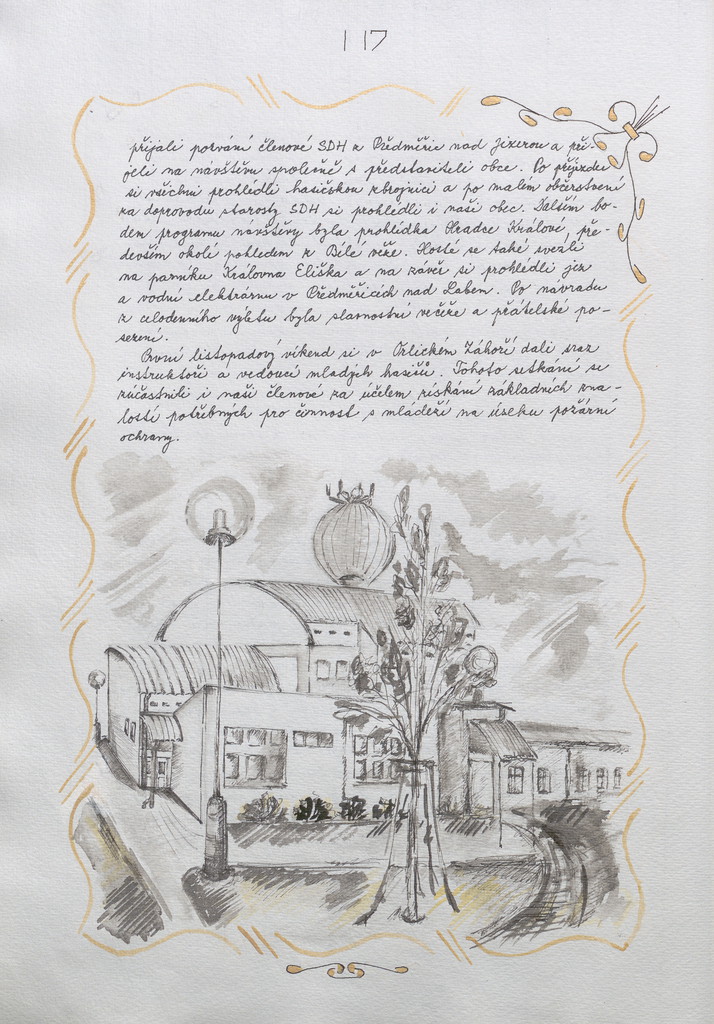 117
přijali pozvání členové SDH z Předměřic nad Jizerou a při-
jeli na návštěvu společně s představiteli obce. Po příjezdu
si všichni prohlédli hasičskou zbrojnici a po malém občerstvení
za doprovodu starosty SDH si prohlédli i naši obec. Dalším bo-
dem programu návštěvy byla prohlídka Hradce Králové, pře-
devším okolí pohledem z Bílé věže. Hosté se také svezli
na parníku Královna Eliška a na závěr si prohlédli jez
a vodní elektrárnu v Předměřicích nad Labem. Po návratu
z celodenního výletu byla slavnostní večeře a přátelské po-
sezení.
První listopadový víkend si v Orlickém Záhoří dali sraz
instruktoři a vedoucí mladých hasičů. Tohoto setkání se
zúčastnili i naši členové za účelem získání základních zna-
lostí potřebných pro činnost s mládeží na úseku požární
ochrany.